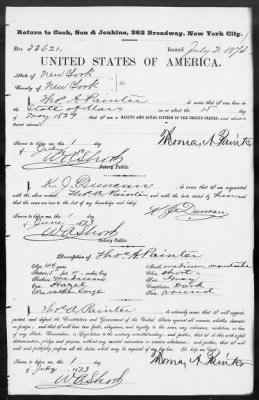 Return to Cook, Son & Jenkins, 262 Broadway, New York City.
No. 33621. Issued July 2 1873
UNITED STATES OF AMERICA.
State of New York
County of New York
I, Thos A. Painter do swear that I was born in
the State of on or about the 15 day of
May 1829 that I am a NATIVE AND LOYAL CITIZEN OF THE UNITED STATES, and about to
travel abroad.
Sworn to before me, this 1
day of July 1873
Thomas A. Painter
Notary Public.
I, K. J. Duncan do swear that I am acquainted
with the above named Thos. A. Painter and with the facts stated by him
and that the same are true to the best of my knowledge and belief.
Sworn to before me, this 1
day of June 1873
K. J. Duncan
Notary Public.
Description of Thos. A. Painter
Age 44 years
Mouth medium, moustache
Stature 5 feet inches, Eng.
Chin short
Forehead medium
Hair Gray
Eyes Hazel
Complexion dark
Nose rather large
Face round
I, Thos. A. Painter do solemnly swear that I will support,
protect, and defend the Constitution and Government of the United States against all enemies, whether domestic
or foreign; and that I will bear true faith, allegiance, and loyalty to the same, any ordinance, resolution, or law
of any State, Convention, or Legislature to the contrary notwithstanding; and further, that I do this with a full
determination, pledge, and purpose, without any mental reservation or evasion whatsoever; and further, that I
will well and faithfully perform all the duties which may be required of me by law. So help me God.
Sworn to before me, this 1
day of July 1873
Thomas A. Painter
Notary Public.